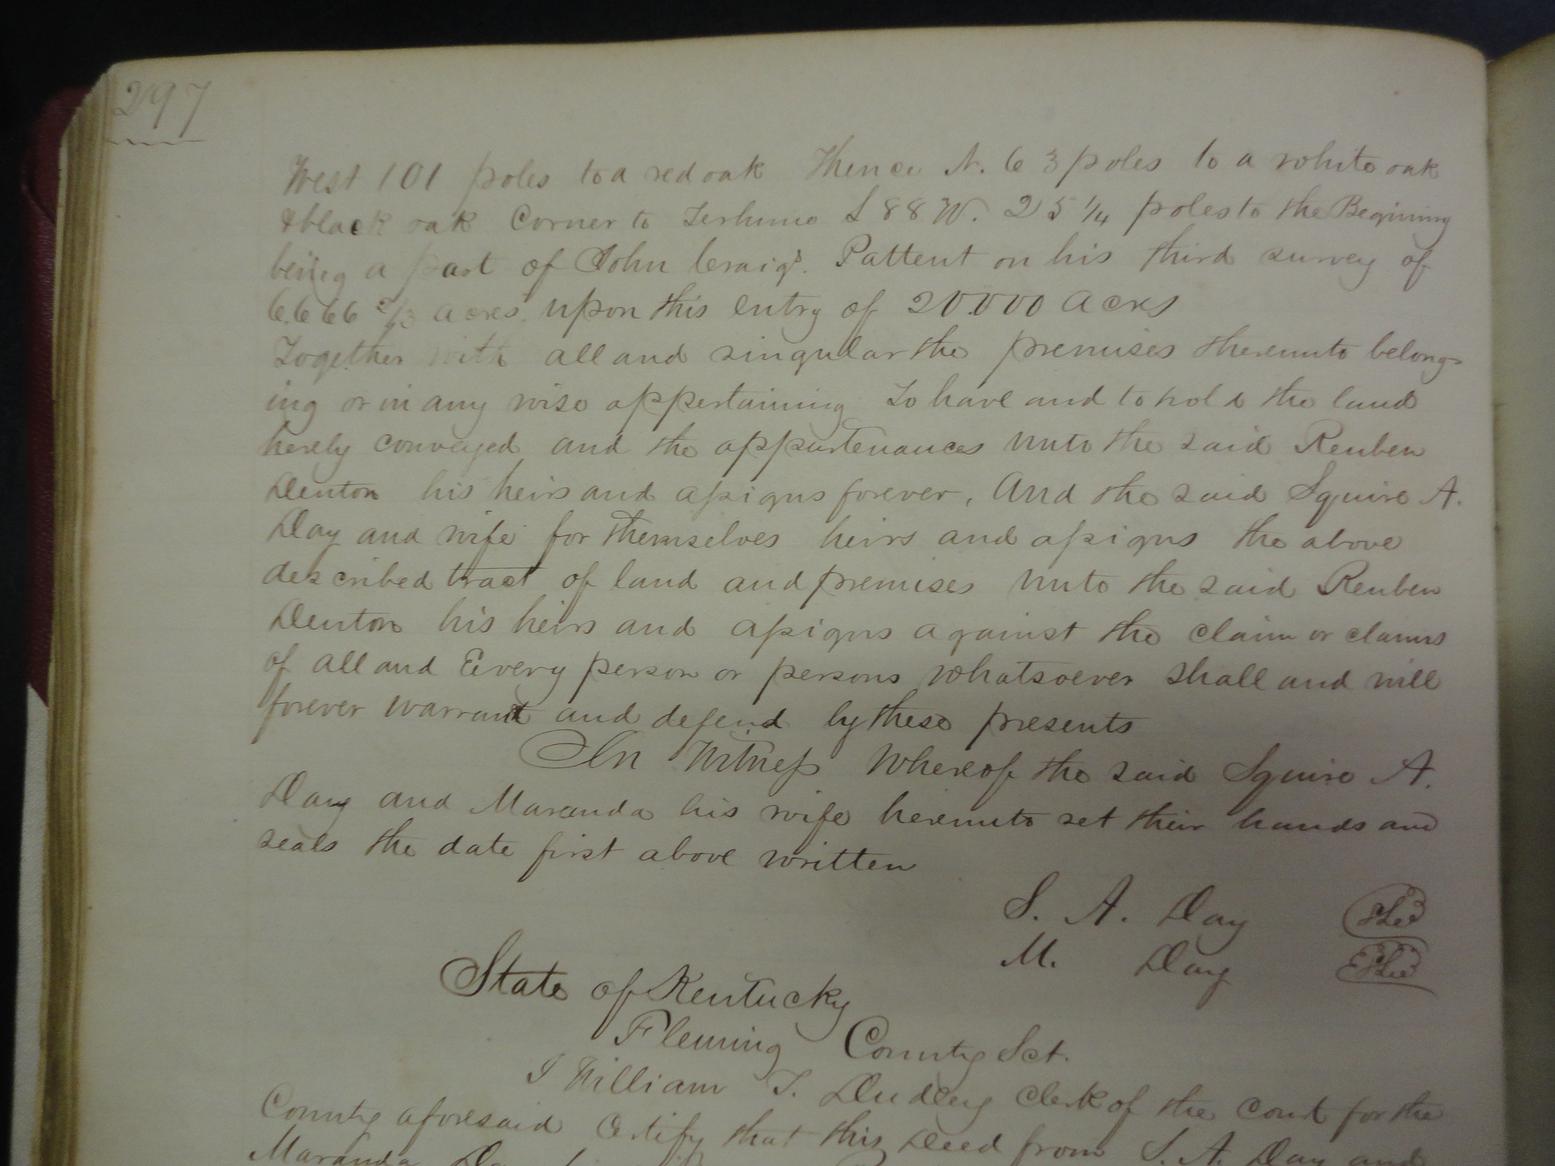 297
West 101 poles to a red oak Thence N. 63 poles to a white oak
& black oak Corner to Terhune S 88 W. 25 1/4 poles to the Begining
being a part of John Craig's. Pattent on his third survey of
6666 2/3 acres upon this entry of 20.000 acres
Together with all and singular the premises thereunto belong-
ing or in any wise appertaining To have and to hold the land
hereby conveyed and the appurtenances unto the said Reuben
Denton his heirs and assigns forever, And the said Squire A.
Day and wife for themselves heirs and assigns the above
described tract of land and premises unto the said Reuben
Denton his heirs and assigns against the claim or claims
of all and Every person or persons whatsoever shall and will
forever warrant and defend by these presents
In Witness Whereof the said Squire A.
Day and Maranda his wife hereunto set their hands and
seals the date first above written
S. A. Day
M. Day
State of Kentucky
Fleming County Sct.
I William T. Dudley Clerk of the Court for the
County aforesaid Certify that this Deed from S. A. Day and
Maranda Day